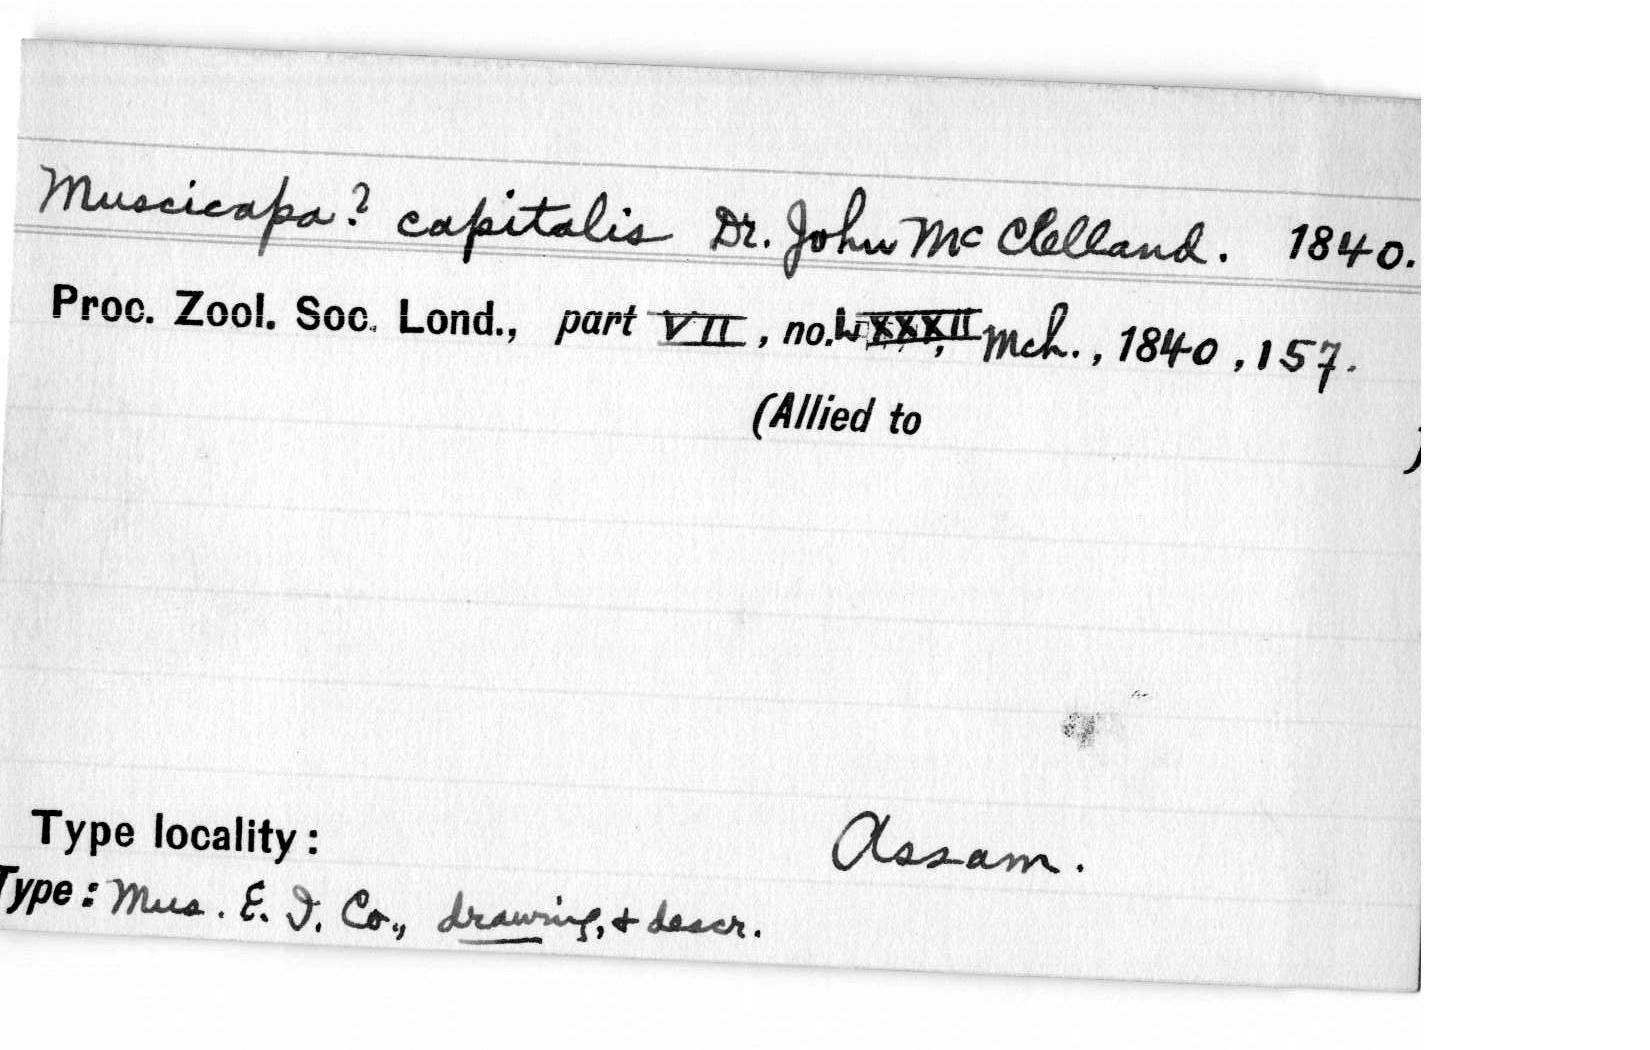 Muscicapa? capitalis Dr. John McClelland. 1840.
Proc. Zool. Soc. Lond., part VII, no. Mch., 1840, 157.
(Allied to )
Type locality: Assam.
Type: Mus. E. I. Co., drawing, & descr.